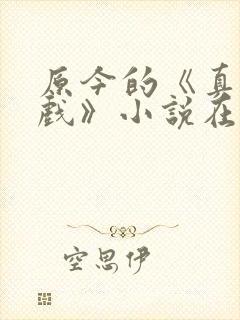 原今的《真
戲》小說在
空思伊